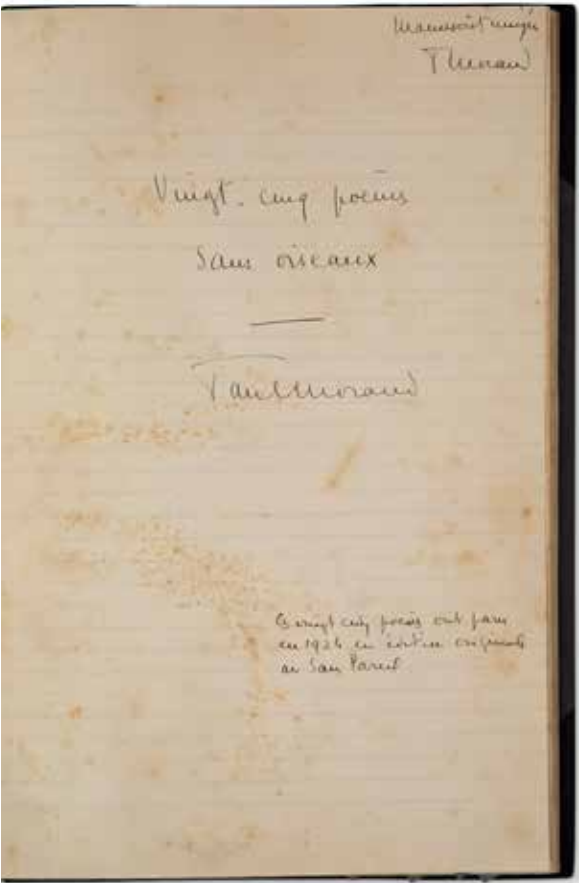 Manuscrit unique
P Morand
Vingt-cinq poèmes
Sans oiseaux
Paul Morand
Ces vingt cinq poèmes ont paru
en 1924 en édition originale
au Sans Pareil